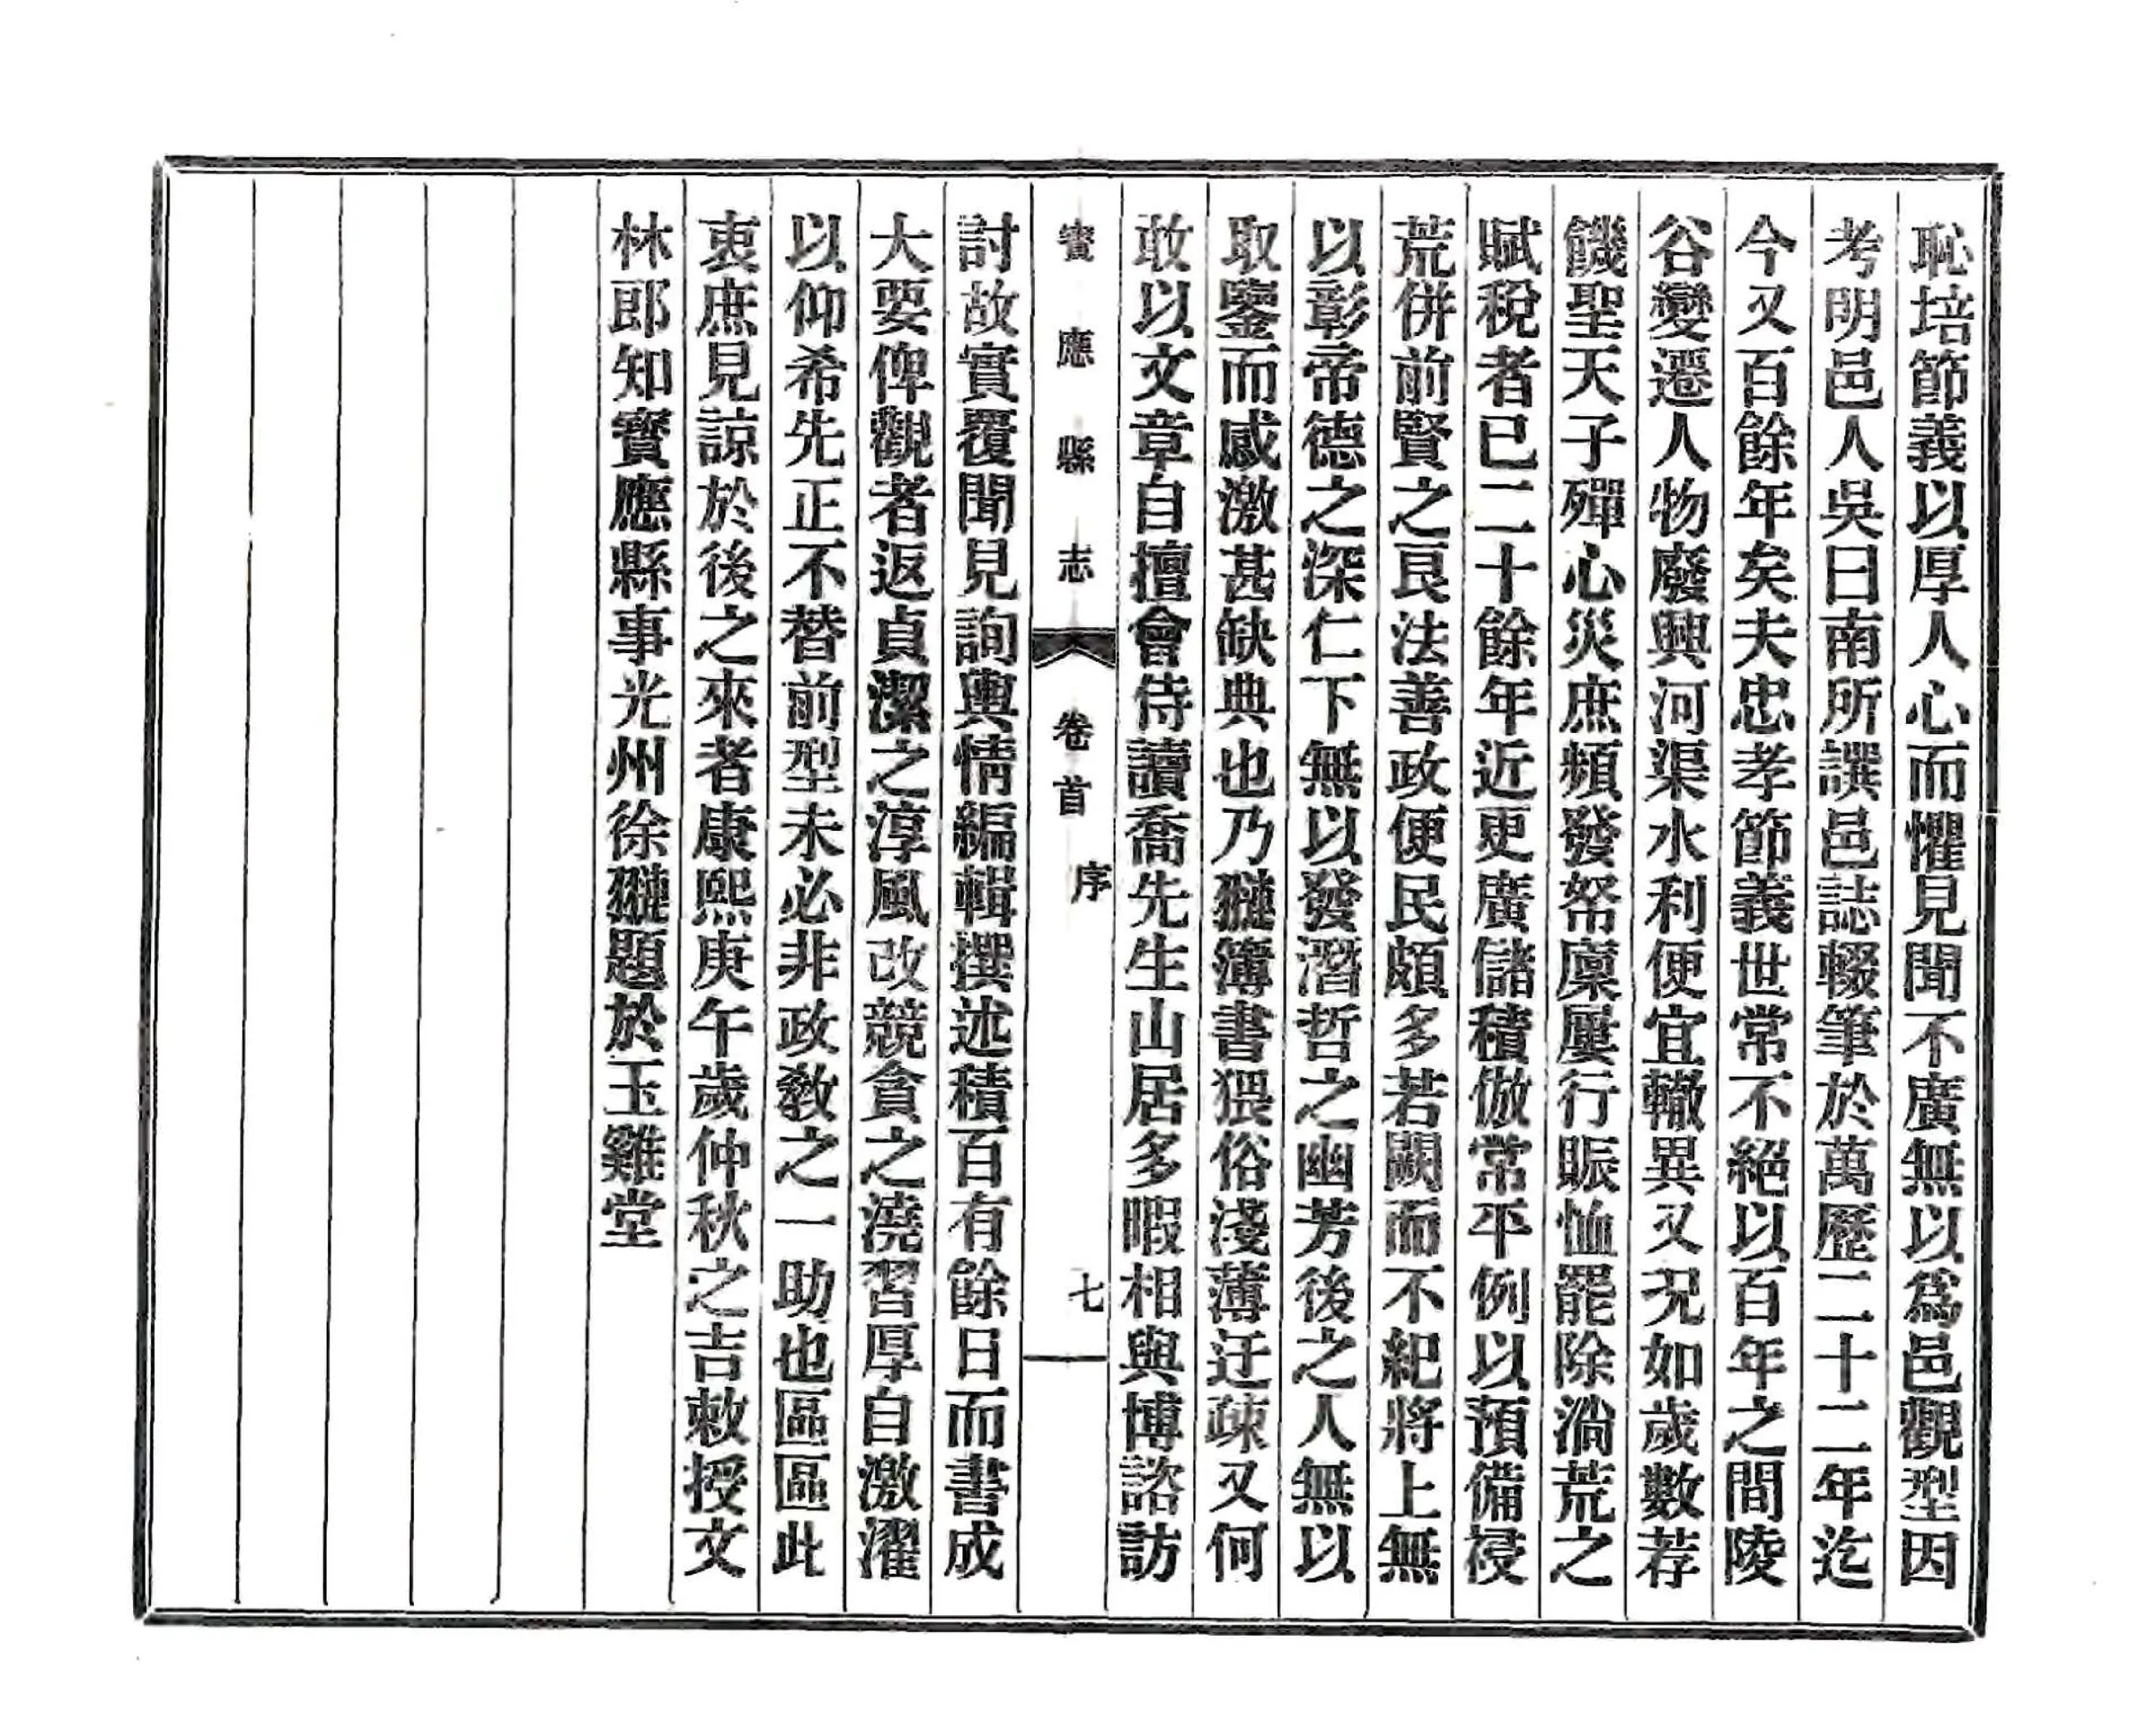 恥培節義以厚人心而懼見聞不廣無以爲邑觀型因
考明邑人吳曰南所譔邑誌輟筆於萬歷二十二年迄
今又百餘年矣夫忠孝節義世常不絕以百年之間陵
谷變遷人物廢興河渠水利便宜轍異又況如歲數荐
饑聖天子殫心災庶頻發帑廩屢行賑恤罷除淌荒之
賦稅者已二十餘年近更廣儲積倣常平例以預備祲
荒併前賢之良法善政便民頗多若闕而不紀將上無
以彰帝德之深仁下無以發潛哲之幽芳後之人無以
取鑒而感激甚缺典也乃𤣏簿書猥俗淺薄迂疎又何
敢以文章自擅會侍讀喬先生山居多暇相與博諮訪
寶應縣志 卷首 序 七
討故實覆聞見詢輿情編輯撰述積百有餘日而書成
大要俾觀者返貞潔之淳風改競貪之澆習厚自激濯
以仰希先正不替前型未必非政敎之一助也區區此
衷庶見諒於後之來者康熙庚午歲仲秋之吉敕授文
林郎知寶應縣事光州徐題於玉雞堂